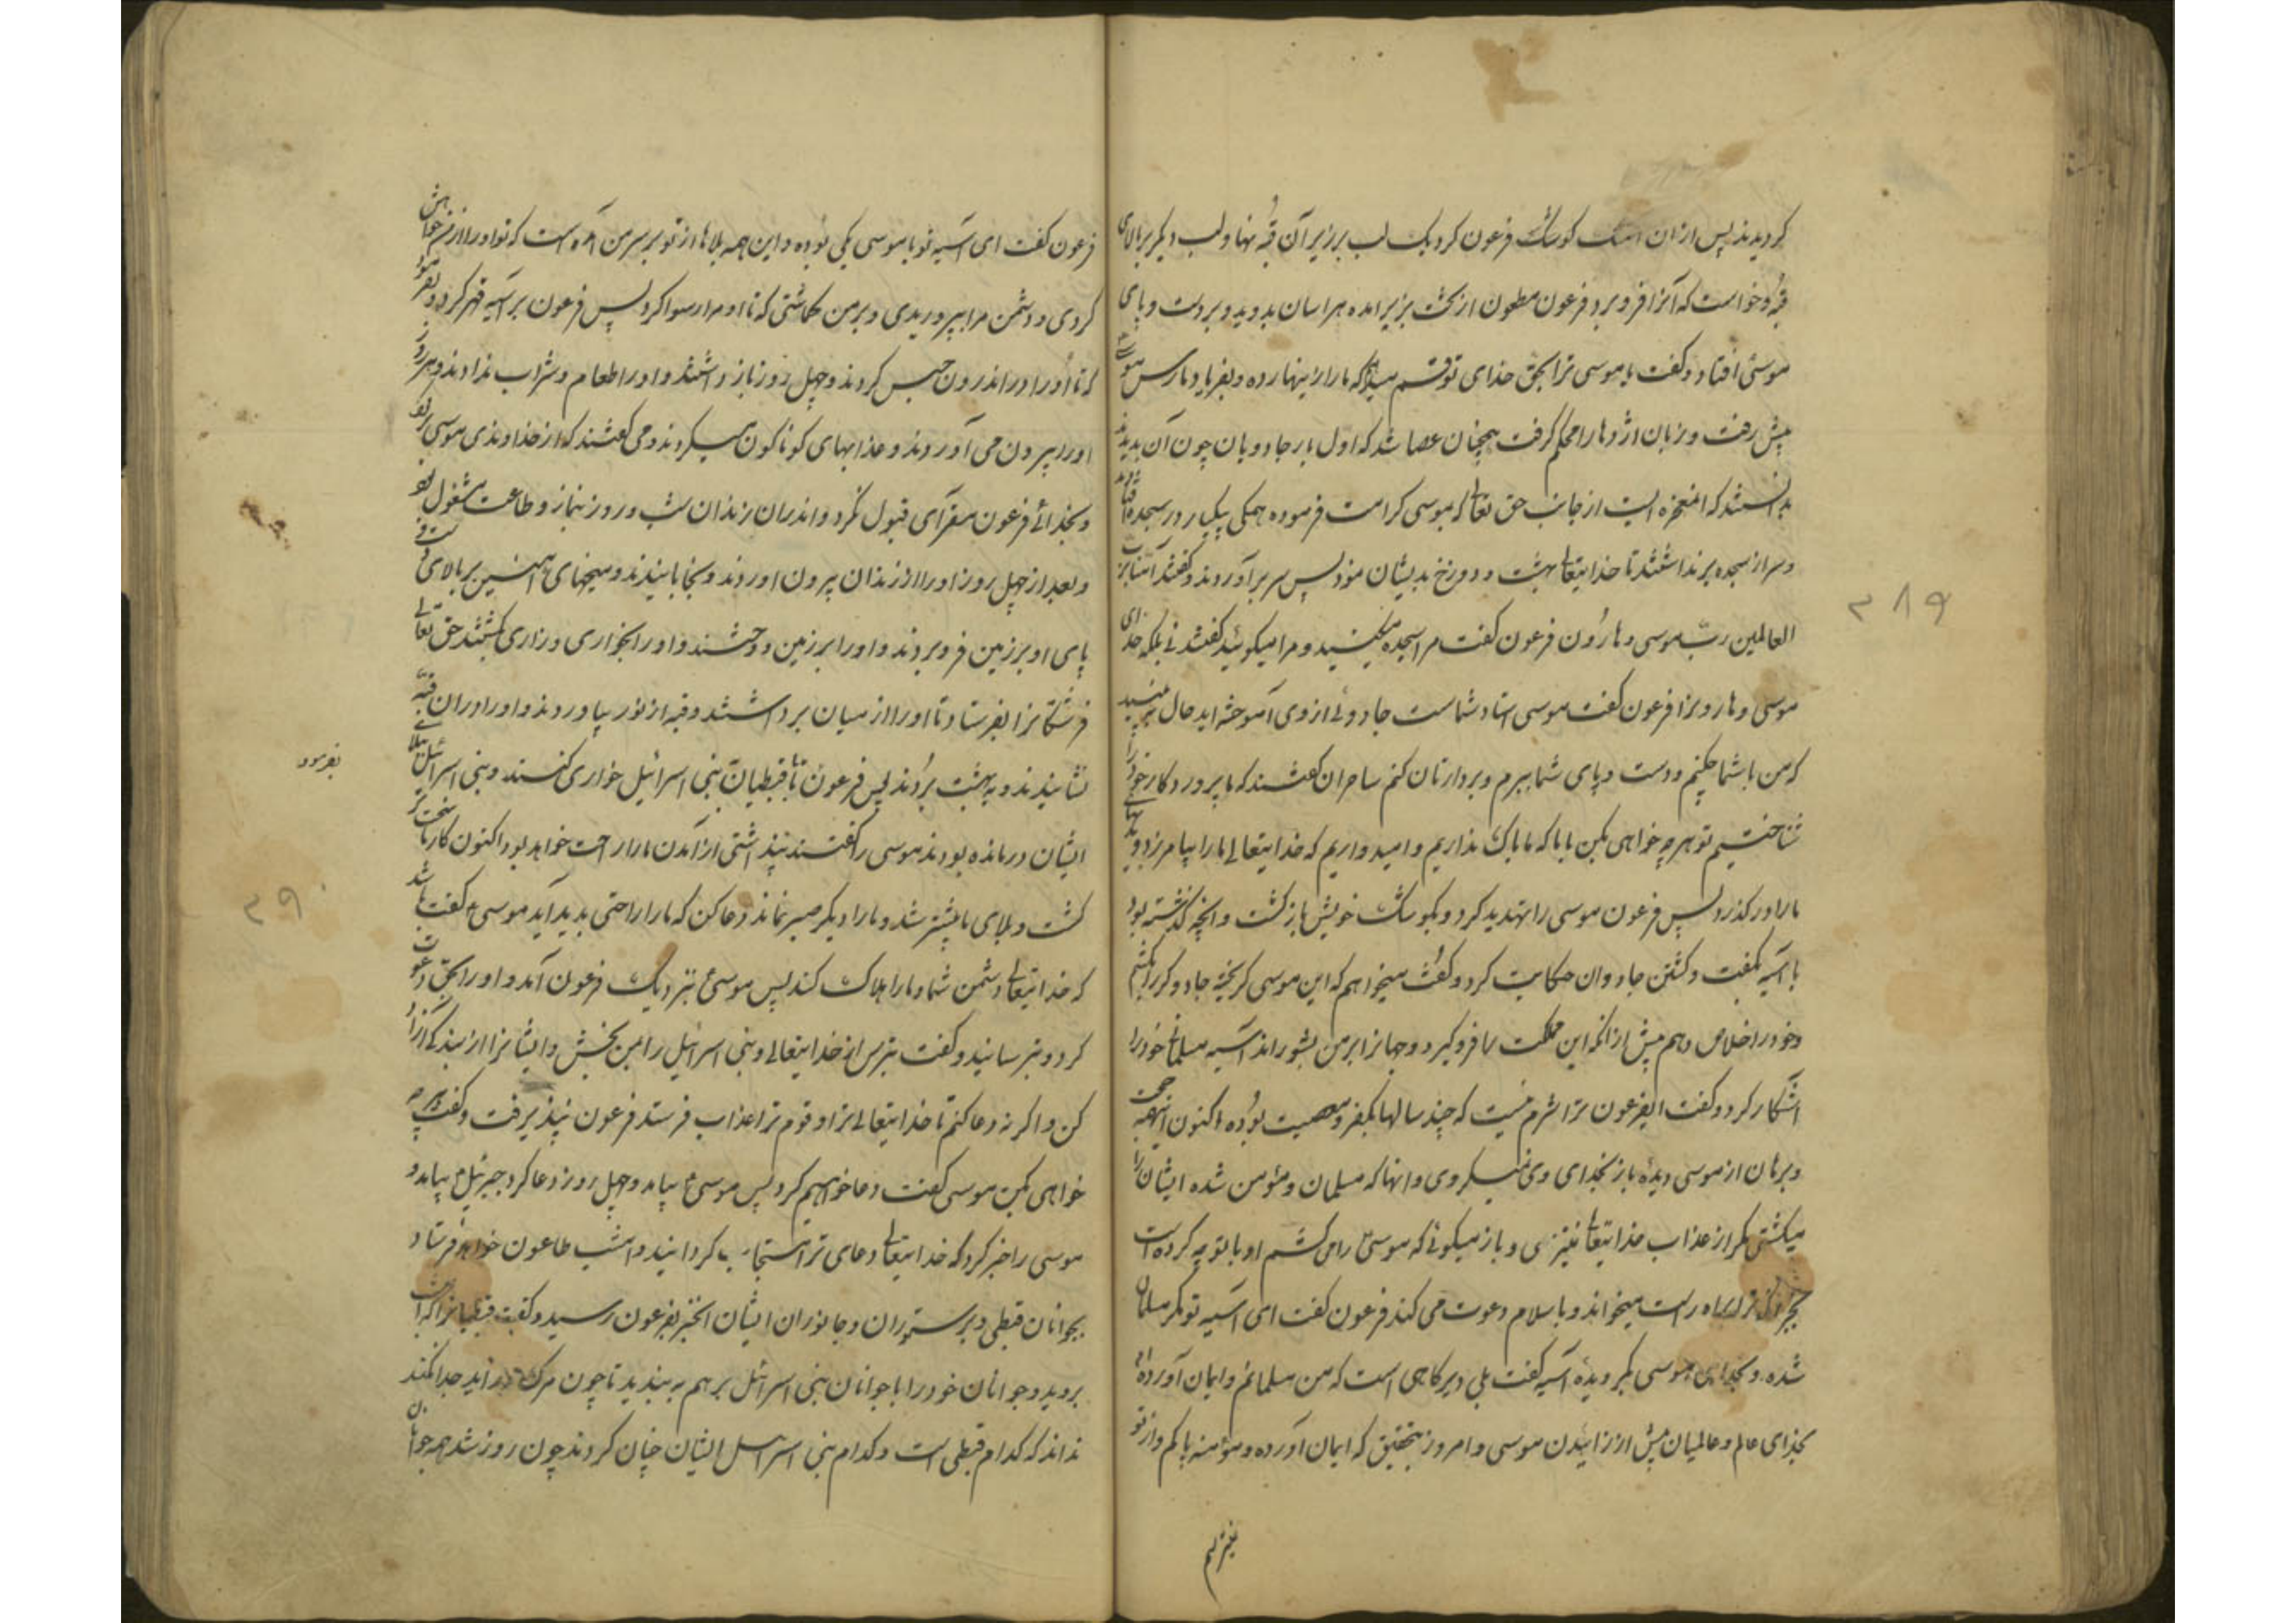 کردیدند پس ازان آهنک کوشک فرعون کرد یک لب بر زیر آن قبه نهاد و لب دیکر بر بالای
قبه و خواست که آنرا فرو برد فرعون ملعون از تخت بزیر امده هراسان بدوید و بر دست و پای
موسی افتاد و کفت یا موسی ترا بحق خدای تو قسم میدهم که مارا زینهار ده و بفریاد ما رس موسی
پیش رفت و زبان اژدها را محکم کرفت همچنان عصا شد که اول بار جادویان چون آن بدیدند
بدانستند که معجزه ایست از جانب حق تعالی که بموسی کرامت فرموده همکی بیکبار در سجده افتادند
و سر از سجده برنداشتند تا خدایتعالی بهشت و دوزخ بدیشان نمود پس سر بر آوردند و کفتند آمنا برب
العالمین رب موسی و هارون فرعون کفت مرا سجده میکنید و مرا میکوئید کفتند نی بلکه خدای
موسی و هارونرا فرعون کفت موسی استاد شماست جادوئی از وی آموخته اید حال ببینید
که من با شما چکنم و دست و پای شما ببرم و بردارتان کنم ساحران کفتند که ما پروردکار خود را
شناختیم تو هرچه خواهی بکن با ما که ما باک نداریم و امید واریم که خدایتعالی ما را بیامرزد و بدیهای
ما را در کذرد پس فرعون موسی را تهدید کرد و بکوشک خویش باز کشت و انچه کذشته بود
با آسیه بکفت و کشتن جادوان حکایت کرد و کفت میخواهم که این موسی کریخته جادوکر را بکشم
و خود را خلاص دهم پیش از انکه این مملکت را فرو کیرد و جهانرا بر من بشوراند آسیه مسلمانی خود را
آشکار کرد و کفت ایفرعون ترا شرم نیست که چند سالها بکفر و معصیت بوده اکنون اینهمه حجت
و برهان از موسی دیدۀ باز بخدای وی نمیکروی و انها که مسلمان و مؤمن شده ایشان را
میکشتی مکر از عذاب خدایتعالی نترسی و باز میکوئی که موسی را می کشم او با تو چه کرده است
بجز آنکه ترا براه راست میخواند و باسلام دعوت می کند فرعون کفت ای آسیه تو مکر مسلمان
شده و بخدای موسی بکرویدۀ آسیه کفت بلی دیرکاهی است که من مسلمانم و ایمان آورده ام
بخدای عالم و عالمیان پیش از زائیدن موسی و امروز بتحقیق که ایمان آورده و مؤمنه پاکم و از تو
نیترسم
۲۸۹
فرعون کفت ای آسیه تو با موسی یکی بوده و این همه بلاها از تو بر سر من آمده است که تو او را از من خواهش
کردی و دشمن مرا بپروریدی و بر من کماشتی که تا او مرا رسوا کرد پس فرعون بر آسیه قهر کرد و بفرمود
که تا او را در اندرون حبس کردند و چهل روز باز داشتند و او را طعام و شراب ندادند و هر روز
او را بیرون می آوردند و عذابهای کوناکون میکردند و می کفتند که از خداوندی موسی برکرد
و بخدائی فرعون مقر آی قبول نکرد و اندران زندان شب و روز بنماز و طاعت مشغول بود
و بعد از چهل روز او را از زندان بیرون اوردند و بخوابانیدند و میخهای آهنین بر بالای دست و
پای او بر زمین فرو بردند و او را بر زمین دوختند و او را بخواری و زاری بکشتند حق تعالی
فرشتکانرا بفرستاد تا او را از میان برداشتند و قبه از نور بیاوردند و او را دران قبه
نشانیدند و به بهشت بردند پس فرعون تا قبطیان بنی اسرائیل خواری کنند و بنی اسرائیل ببلای
ایشان درمانده بودند موسی را کفتند پنداشتی از آمدن ما را راحت خواهد بود اکنون کار ما سخت تر
کشت و بلای ما بیشتر شد و ما را دیکر صبر نماند دعا کن که ما را راحتی بدید آید موسی ع کفت باشد
که خدایتعالی دشمن شما و ما را هلاک کند پس موسی ع بنزدیک فرعون آمد و او را بحق دعوت
کرد و بترسانید و کفت بترس از خدایتعالی و بنی اسرائیل را بمن بخش و ایشانرا از بندکی آزاد
کن و اکر نه دعا کنم تا خدایتعالی ترا و قوم ترا عذاب فرستد فرعون نپذیرفت و کفت هرچه
خواهی بکن موسی کفت دعا خواهیم کرد پس موسی ع بیامد و چهل روز دعا کرد جبرئیل ع بیامد و
موسی را خبر کرد که خدایتعالی دعای ترا مستجاب کردانید و امشب طاعون خواهد فرستاد
بجوانان قبطی و بر ستوران و جانوران ایشان انخبر بفرعون رسید و کفت قبطیانرا که امشب
بروید و جوانان خود را با جوانان بنی اسرائیل بر هم به بندید تا چون مرک در آید جدا نکند
نداند که کدام قبطی است و کدام بنی اسرائیل ایشان چنان کردند چون روز شد همه جوانان
بفرمود
۲۹۰